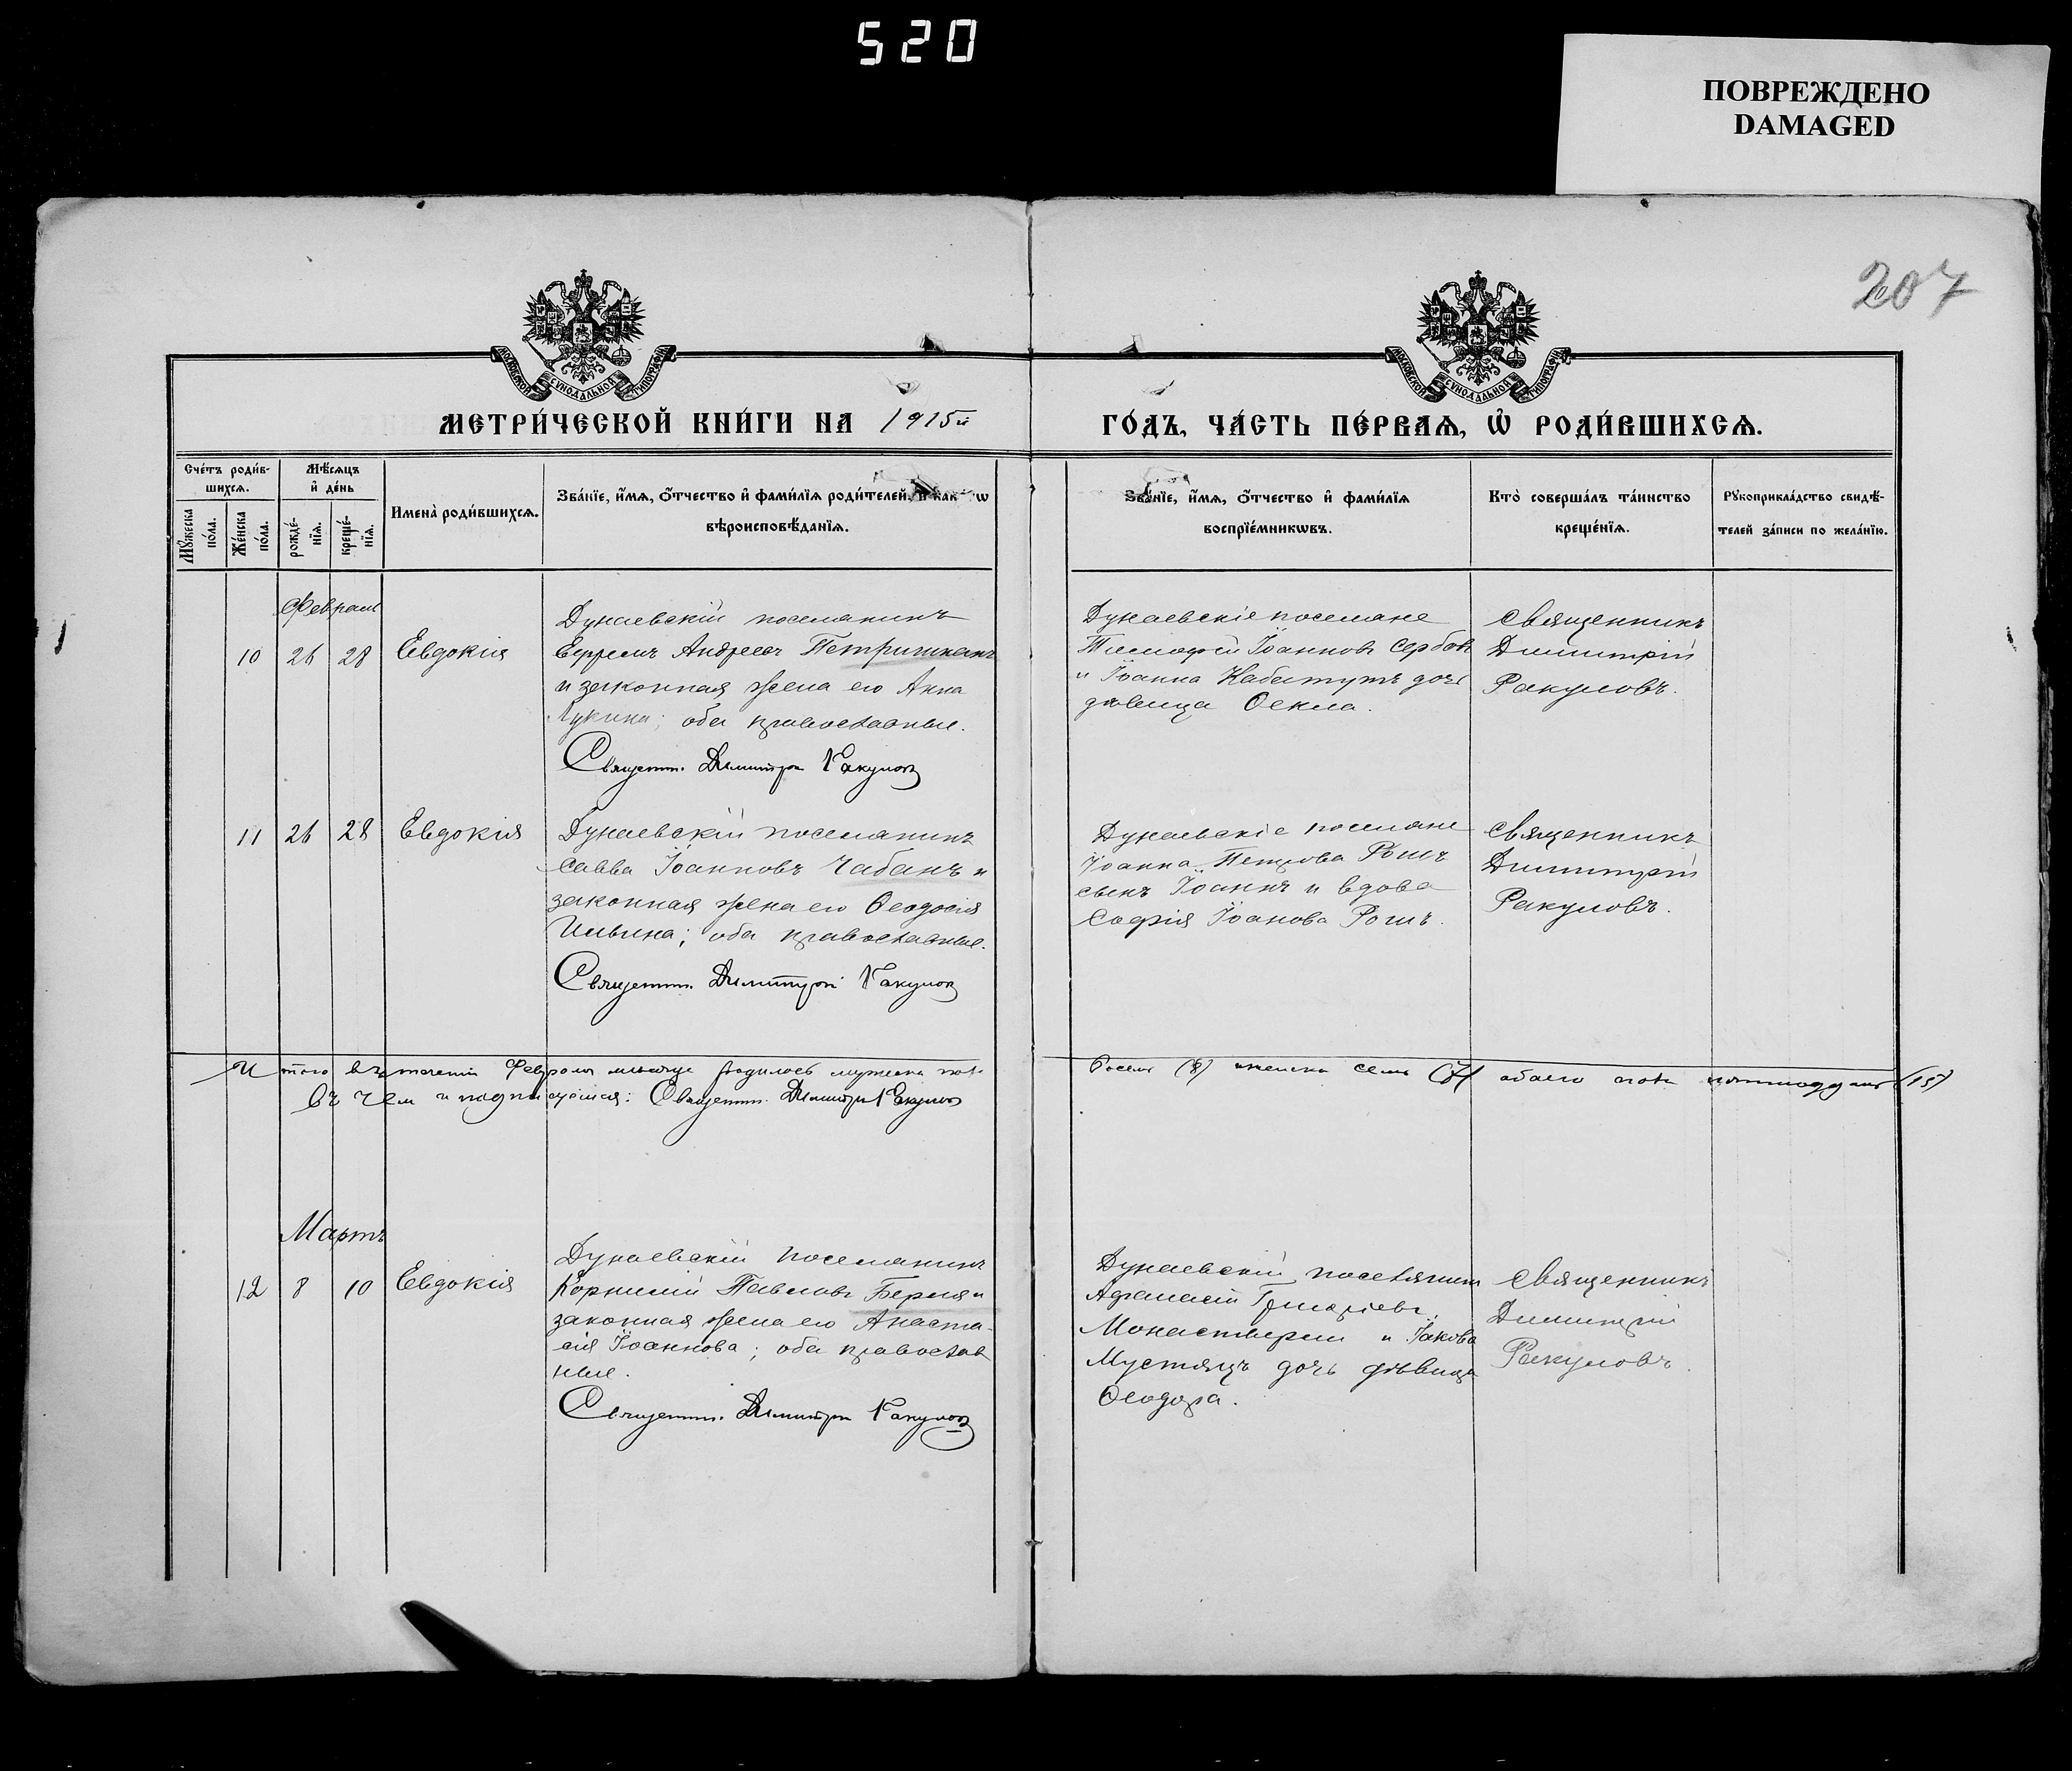 520
ПОВРЕЖДЕНО
DAMAGED
207
МОСКОВСКОЙ СѴНОДАЛЬНОЙ ТИПОГРАФІИ
МОСКОВСКОЙ СѴНОДАЛЬНОЙ ТИПОГРАФІИ
МЕТРИ́ЧЕСКОЙ КНИ́ГИ НА 1915й ГО́ДЪ, ЧА́СТЬ ПЕ́РВАѦ, Ѡ҆ РОДИ́ВШИХСѦ.
Сче́тъ роди́в-
шихсѧ.
Мꙋ́жеска
по́ла.
Же́нска
по́ла.
Мѣ́сѧцъ
и҆ де́нь
рожде́-
нїѧ.
креще́-
нїѧ.
Имена̀ роди́вшихсѧ.
Зва́нїе, и҆́мѧ, ѻ҆́тчество и҆ фами́лїѧ роди́телей, и҆ как
вѣроисповѣ́данїѧ.
Зва́нїе, и҆́мѧ, ѻ҆́тчество и҆ фами́лїѧ
воспрїе́мникѡвъ.
Кто̀ соверша́лъ та́инство
креще́нїѧ.
Рꙋкоприкла́дство свидѣ́-
телей за́писи по жела́нїю.
Февраль
10 26 28 Евдокія
Дунаевскій поселянинъ
Андреевъ Петришканъ
и законная жена его Анна
Лукина; оба православные.
Священн. Димитрій Ракуловъ
Дунаевскіе поселяне
Тимофей Іоанновъ Сербовъ
и Іоанна Кабатутъ дочь
дѣвица Ѳекла.
Священникъ
Димитрій
Ракуловъ.
11 26 28 Евдокія
Дунаевскій поселянинъ
Савва Іоанновъ Чабанъ и
законная жена его Ѳеодосія
Ильина; оба православные.
Священн. Димитрій Ракуловъ
Дунаевскіе поселяне
Іоанна Петрова Рошъ
сынъ Іоаннъ и вдова
Софія Іоанова Рошъ.
Священникъ
Димитрій
Ракуловъ.
Итого въ теченіи Февраля мѣсяце родилось мужеска пола восемь (8) женска семь (7) обоего пола пятнадцать (15)
въ чем и подписуемся: Священн. Димитрій Ракуловъ
Мартъ
12 8 10 Евдокія
Дунаевскій поселянинъ
Корнилій Павловъ Берля и
законная жена его Анаста-
сія Іоаннова; оба православ
ные.
Священн. Димитрій Ракуловъ
Дунаевскій поселянинъ
Афанасій Григоріевъ
Монастырли и Іакова
Мустяцъ дочь дѣвица
Ѳеодора.
Священникъ
Димитрій
Ракуловъ.